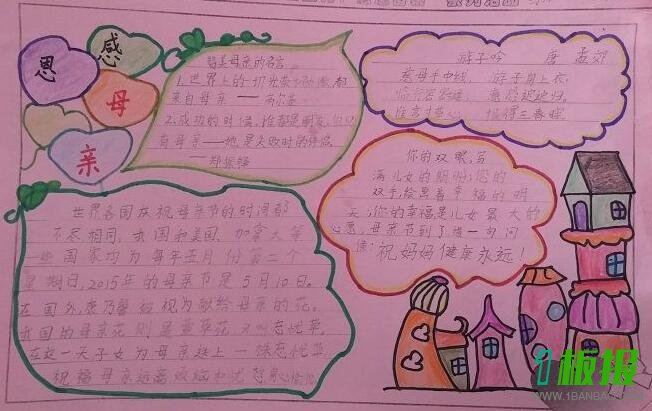 感
恩
母
亲
赞美母亲的名言。
1.世界上的一切光荣和骄傲,都
来自母亲——高尔基
2.成功的时候,谁都是朋友。但只
有母亲——她是失败时的伴侣。
——郑振铎
游子吟 唐 孟郊
慈母手中线, 游子身上衣。
临行密密缝, 意恐迟迟归。
谁言寸草心, 报得三春晖
你的双眼,写
满儿女的期盼;您的
双手,绘出着幸福的明
天;你的幸福是儿女最大的
心愿,母亲节到了道一句问
候:祝妈妈健康永远!
世界各国庆祝母亲节的时间都
不尽相同,我国和美国、加拿大等
一些国家均为每年五月份第二个
星期日,2015年的母亲节是5月10日。
在国外,康乃馨被视为献给母亲的花。
我国的母亲花则是萱草花 又叫忘忧草。
在这一天子女为母亲送上一株忘忧草
祝福母亲远离烦恼和忧愁
1板报
WWW.1BANBAO.COM